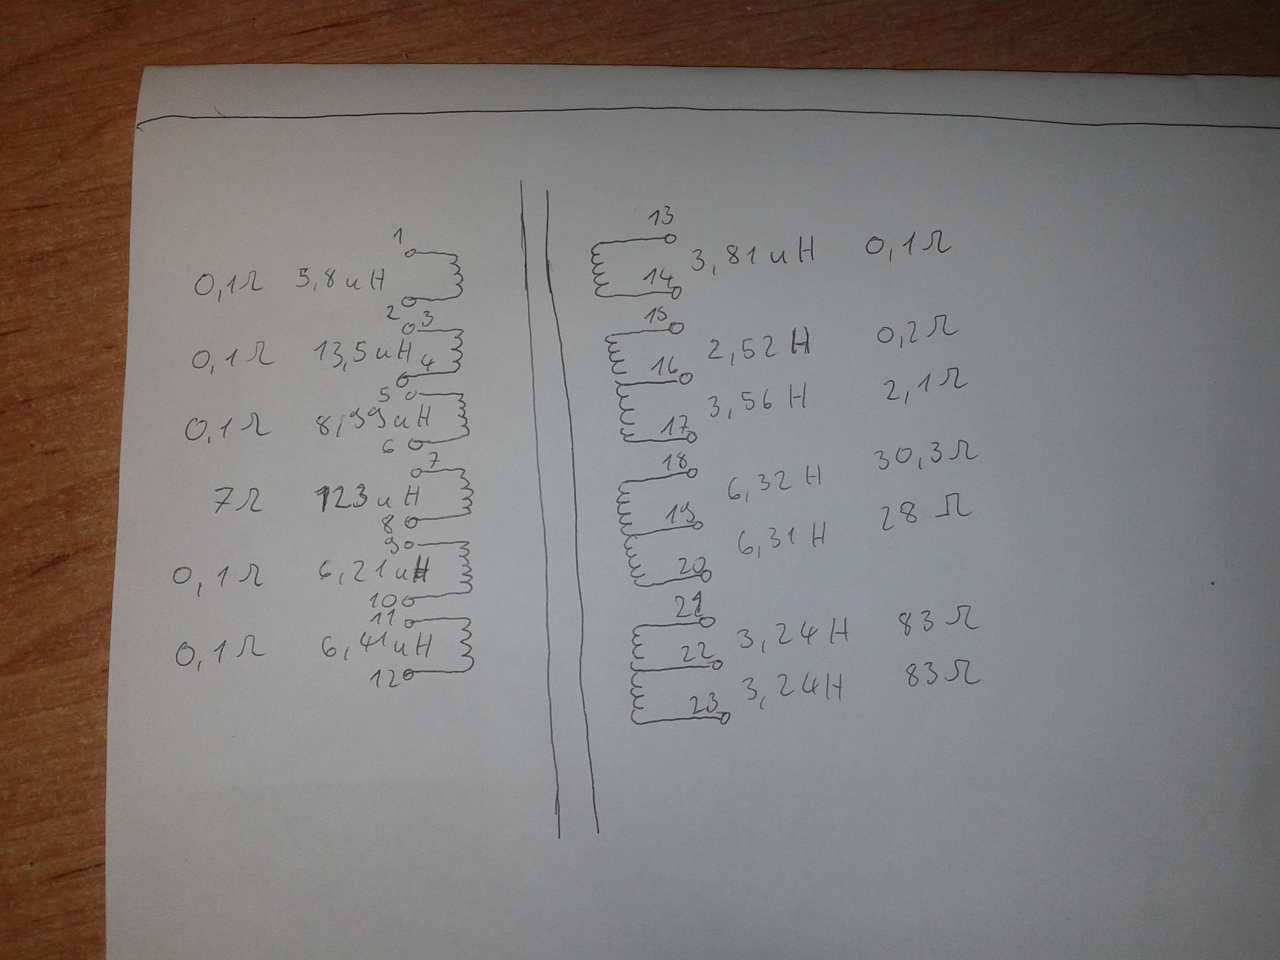 1
0,1Ω 5,8uH
2
3
0,1Ω 13,5uH
4
5
0,1Ω 8,99uH
6
7
7Ω 123uH
8
9
0,1Ω 6,21uH
10
11
0,1Ω 6,41uH
12
13
3,81uH 0,1Ω
14
15
2,52H 0,2Ω
16
3,56H 2,1Ω
17
18
6,32H 30,3Ω
19
6,31H 28Ω
20
21
3,24H 83Ω
22
3,24H 83Ω
23